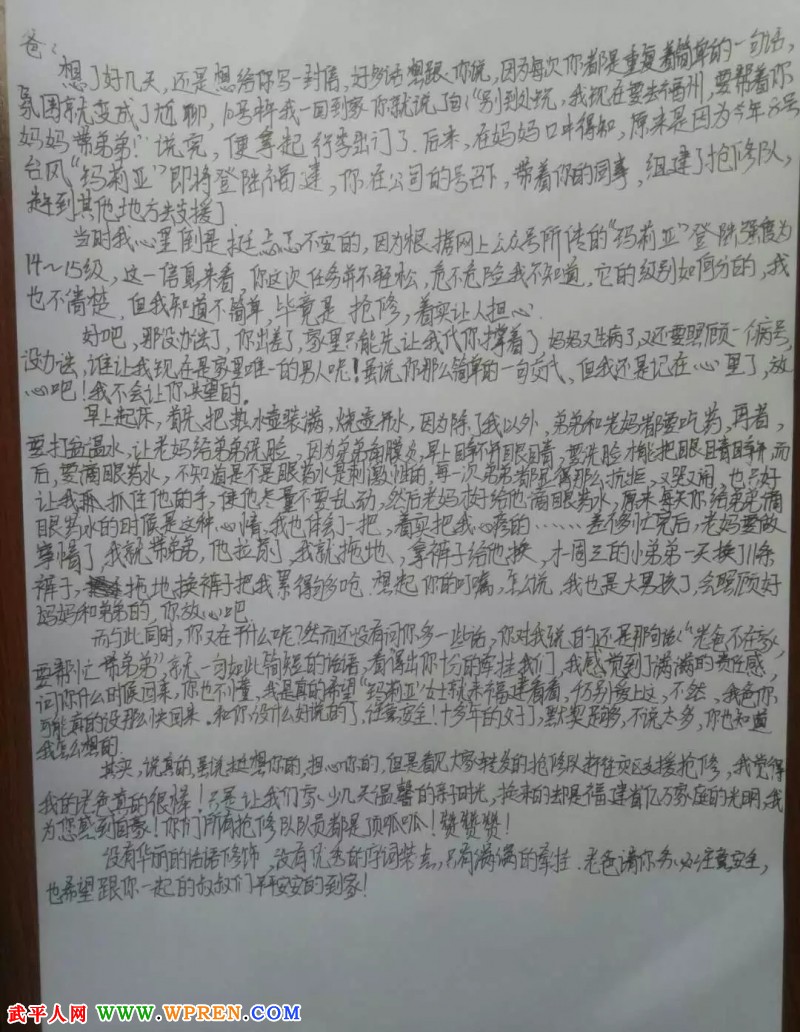 爸:
想了好几天,还是想给你写一封信,好多话想跟你说,因为每次你都是重复着简单的一句话,
氛围就变成了尬聊,10号昨我一回到家你就说了句("别到处玩,我现在要去福州,要帮着你
妈妈带弟弟!"说完,便拿起行李出门了.后来,在妈妈口中得知,原来是因为今年8号
台风"玛莉亚"即将登陆福建,你在公司的号召下,带着你的同事,组建了抢修队,
赶到其他地方去支援了
当时我心里倒是挺忐忑不安的,因为根据网上公众号所传的"玛莉亚"登陆强度为
14~15级,这一信息来看,你这次任务并不轻松,危不危险我不知道,它的级别如何分的,我
也不清楚,但我知道不简单,毕竟是抢修,着实让人担心.
好吧,那没办法了,你出差了,家里只能先让我代你撑着了,妈妈又生病了,又还要照顾一个病号,
没办法,谁让我现在是家里唯一的男人呢!虽说你那么简单的一句交代,但我还是记在心里了,放
心吧!我不会让你失望的.
早上起床,首先把热水壶装满,烧壶开水,因为除了我以外,弟弟和老妈都要吃药,再者,
要打盆温水,让老妈给弟弟洗脸,因为弟弟角膜炎,早上睁不开眼睛,要洗脸才能把眼睛睁开,而
后,要滴眼药水,不知道是不是眼药水是刺激性的,每一次弟弟都显得那么抗拒,又哭又闹,也只好
让我抓住他的手,使他尽量不要乱动,然后老妈好给他滴眼药水,原来每天你给弟弟滴
眼药水的时候是这种心情,我也体会了一把,着实把我心疼的……差不多忙完后,老妈要做
家务了,我就带弟弟,他拉尿,我就拖地、拿裤子给他换,才一周三的小弟弟一天换了11条
裤子,拖地换裤子把我累得够呛.想起你的叮嘱,怎么说,我也是大男孩了,会照顾好
妈妈和弟弟的,你放心吧.
而与此同时,你又在干什么呢?然而还没有问你多一些话,你对我说的还是那句话("老爸不在家,
要帮忙带弟弟",就一句如此简短的话语,看得出你十分的牵挂我们,我感觉到了满满的责任感,
问你什么时候回来,你也不懂.我是真的希望"玛莉亚"女士就来福建看看,千万别较上文,不然,我爸你
可能真的没那么快回来.和你没什么好说的了,注意安全!十多年的父子,默契足够,不说太多,你也知道
我怎么想的.
其实,说真的,虽说挺想你的,担心你的,但是看见大家转发的抢修队赶往灾区支援抢修,我觉得
我的老爸真的很棒!只是让我们家少几天温馨的亲时光,换来的却是福建省亿万家庭的光明,我
为您感到自豪!你们所有抢修队队员都是顶呱呱!赞赞赞!
没有华丽的话语修饰,没有优秀的字词装点,只有满满的牵挂.老爸请你务必注意安全,
也希望跟你一起的叔叔们平平安安的到家!
武平人网 WWW.WPREN.COM